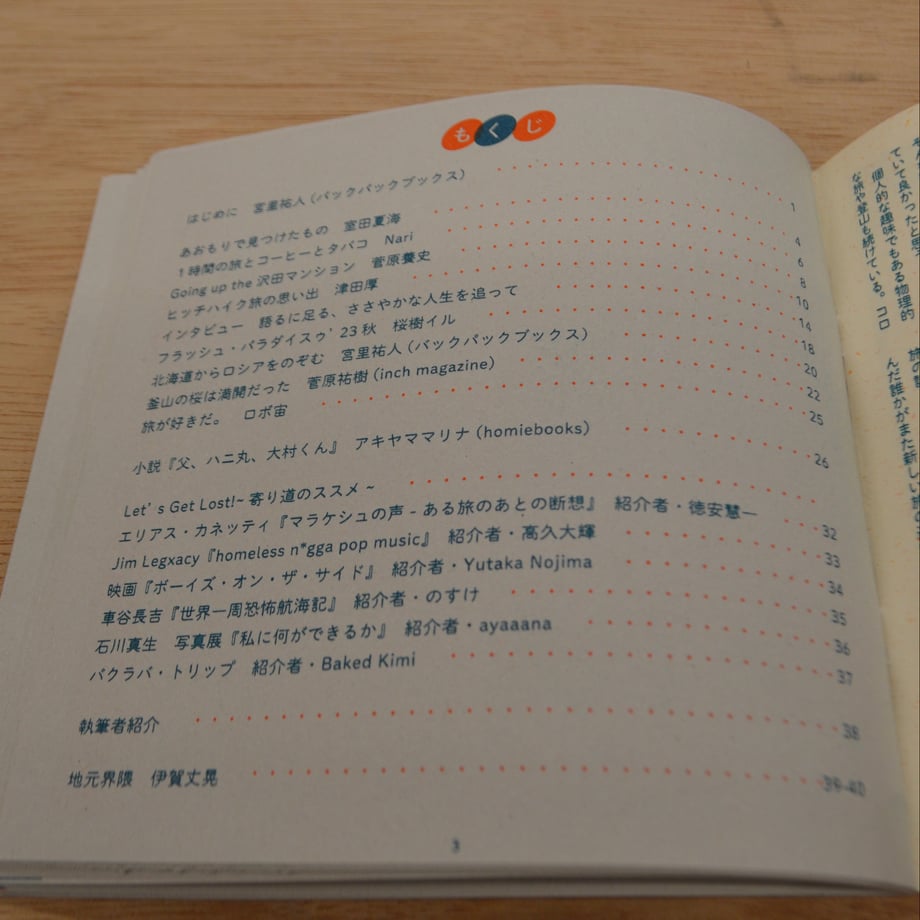 もくじ
はじめに 宮里祐人(バックパックブックス) 1
あおもりで見つけたもの 室田夏海 4
1時間の旅とコーヒーとタバコ Nari 6
Going up the 沢田マンション 菅原養史 8
ヒッチハイク旅の思い出 津田厚 10
インタビュー 語るに足る、ささやかな人生を追って 14
フラッシュ・パラダイスゥ' 23秋 桜樹イル 18
北海道からロシアをのぞむ 宮里祐人(バックパックブックス) 20
釜山の桜は満開だった 菅原祐樹(inch magazine) 22
旅が好きだ。 ロボ宙 25
小説『父、ハニ丸、大村くん』 アキヤママリナ(homiebooks) 26
Let's Get Lost!~寄り道のススメ~
エリアス・カネッティ『マラケシュの声 - ある旅のあとの断想』 紹介者・徳安慧一 32
Jim Legxacy『homeless n*gga pop music』 紹介者・高久大輝 33
映画『ボーイズ・オン・ザ・サイド』 紹介者・Yutaka Nojima 34
車谷長吉『世界一周恐怖航海記』 紹介者・のすけ 35
石川真生 写真展『私に何ができるか』 紹介者・ayaaana 36
バクラバ・トリップ 紹介者・Baked Kimi 37
執筆者紹介 38
地元界隈 伊賀丈晃 39-40
3
ていて良かったと思う
個人的な趣味でもある物理的
な旅や登山も続けている。コロ
んだ誰かがまた新しい旅の